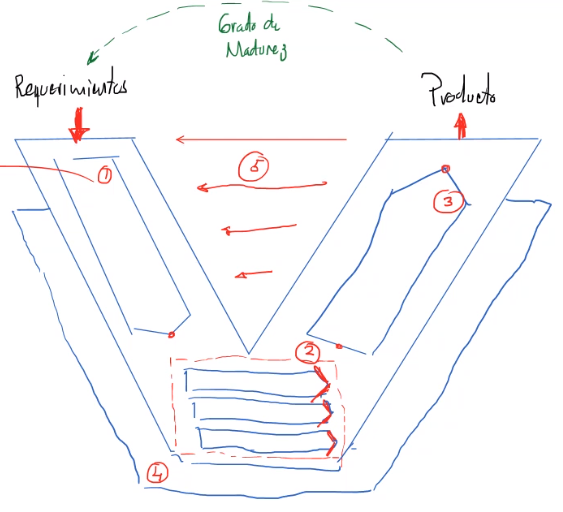 Grado de
Madurez
Requerimientos
Producto
1
5
3
2
4